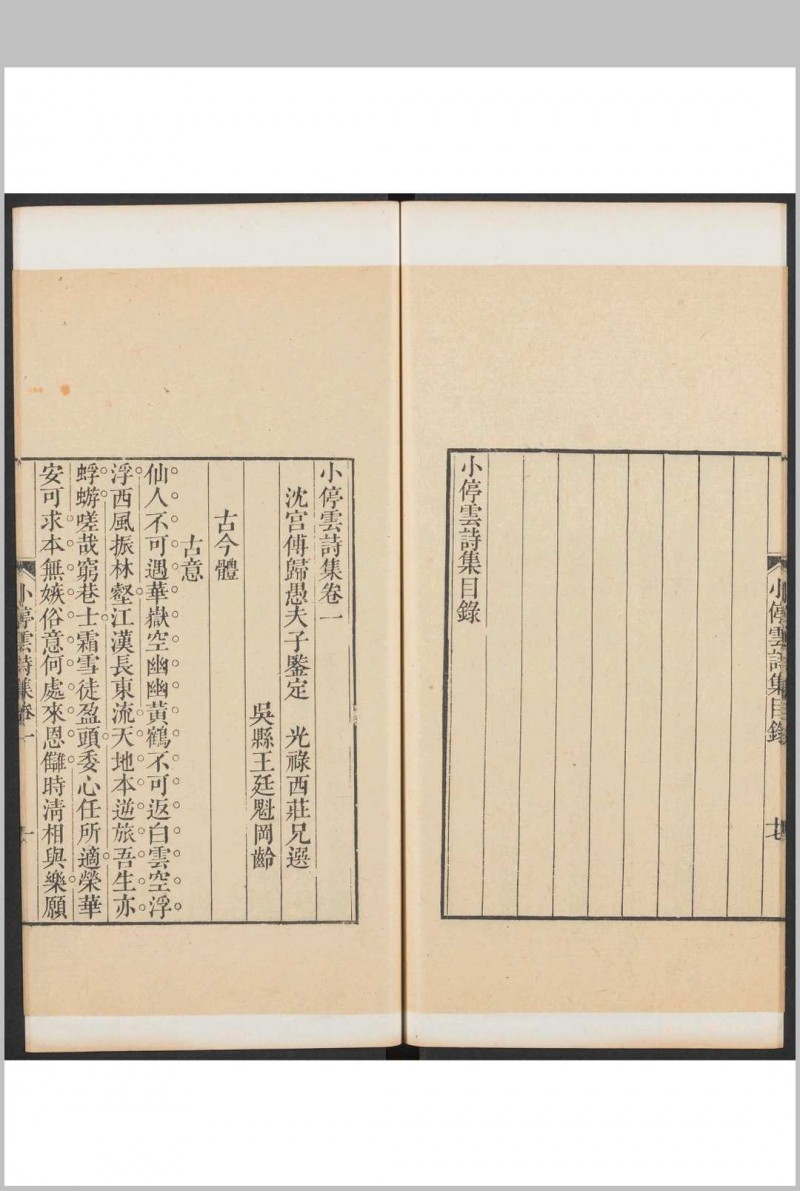 小停雲詩集目錄
小停雲詩集目錄
小停雲詩集卷一
沈宫傅歸愚夫子鑒定　光祿西莊兄選
吳縣王廷魁岡齡
古今體
古意
仙人不可遇華嶽空幽幽黃鶴不可返白雲空浮
浮西風振林壑江漢長東流天地本逆旅吾生亦
蜉蝣嗟哉窮巷士霜雪徒盈頭委心任所適榮華
安可求本無嫉俗意何處來恩讎時清相與樂願
小停雲詩集卷一